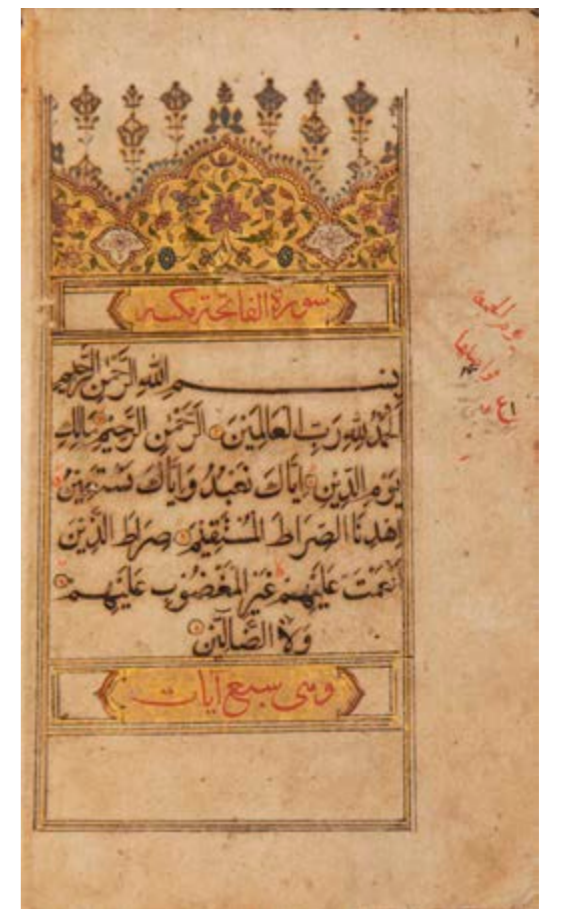 سورة الفاتحة مكية
بسم الله الرَّحْمٰنِ الرَّحِيمِ
اَلْحَمْدُ لِلّٰهِ رَبِّ الْعَالَمِينَ الرَّحْمٰنِ الرَّحِيمِ مَالِكِ
يَوْمِ الدِّينِ اِيَّاكَ نَعْبُدُ وَاِيَّاكَ نَسْتَعِينُ
اِهْدِنَا الصِّرَاطَ الْمُسْتَقِيمَ صِرَاطَ الَّذِينَ
اَنْعَمْتَ عَلَيْهِمْ غَيْرِ الْمَغْضُوبِ عَلَيْهِمْ
وَلَا الضَّالِّينَ
وهي سبع آيات